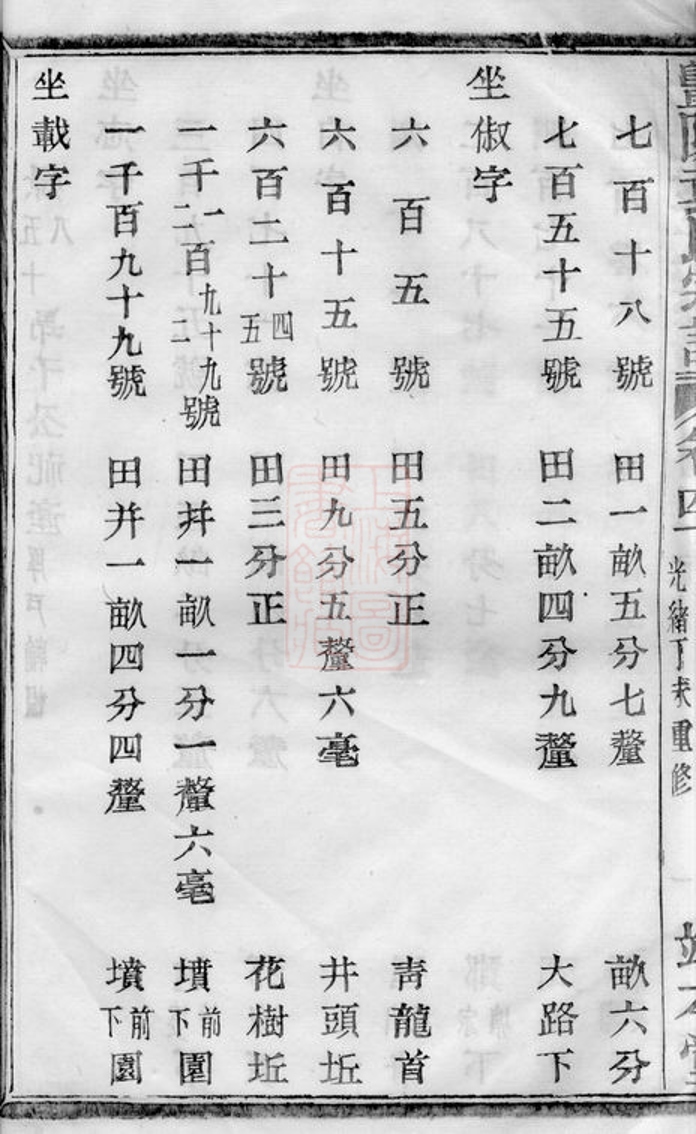 光緒丁未重修
七百十八號 田一畝五分七釐 畝六分
七百五十五號 田二畝四分九釐 大路下
坐俶字
六百五號 田五分正 靑龍首
六百十五號 田九分五釐六毫 井頭坵
六百二十四五號 田三分正 花樹坵
一千一二百九十九二號 田幷一畝一分一釐六毫 墳前下園
一千百九十九號 田并一畝四分四釐 墳前下園
坐載字